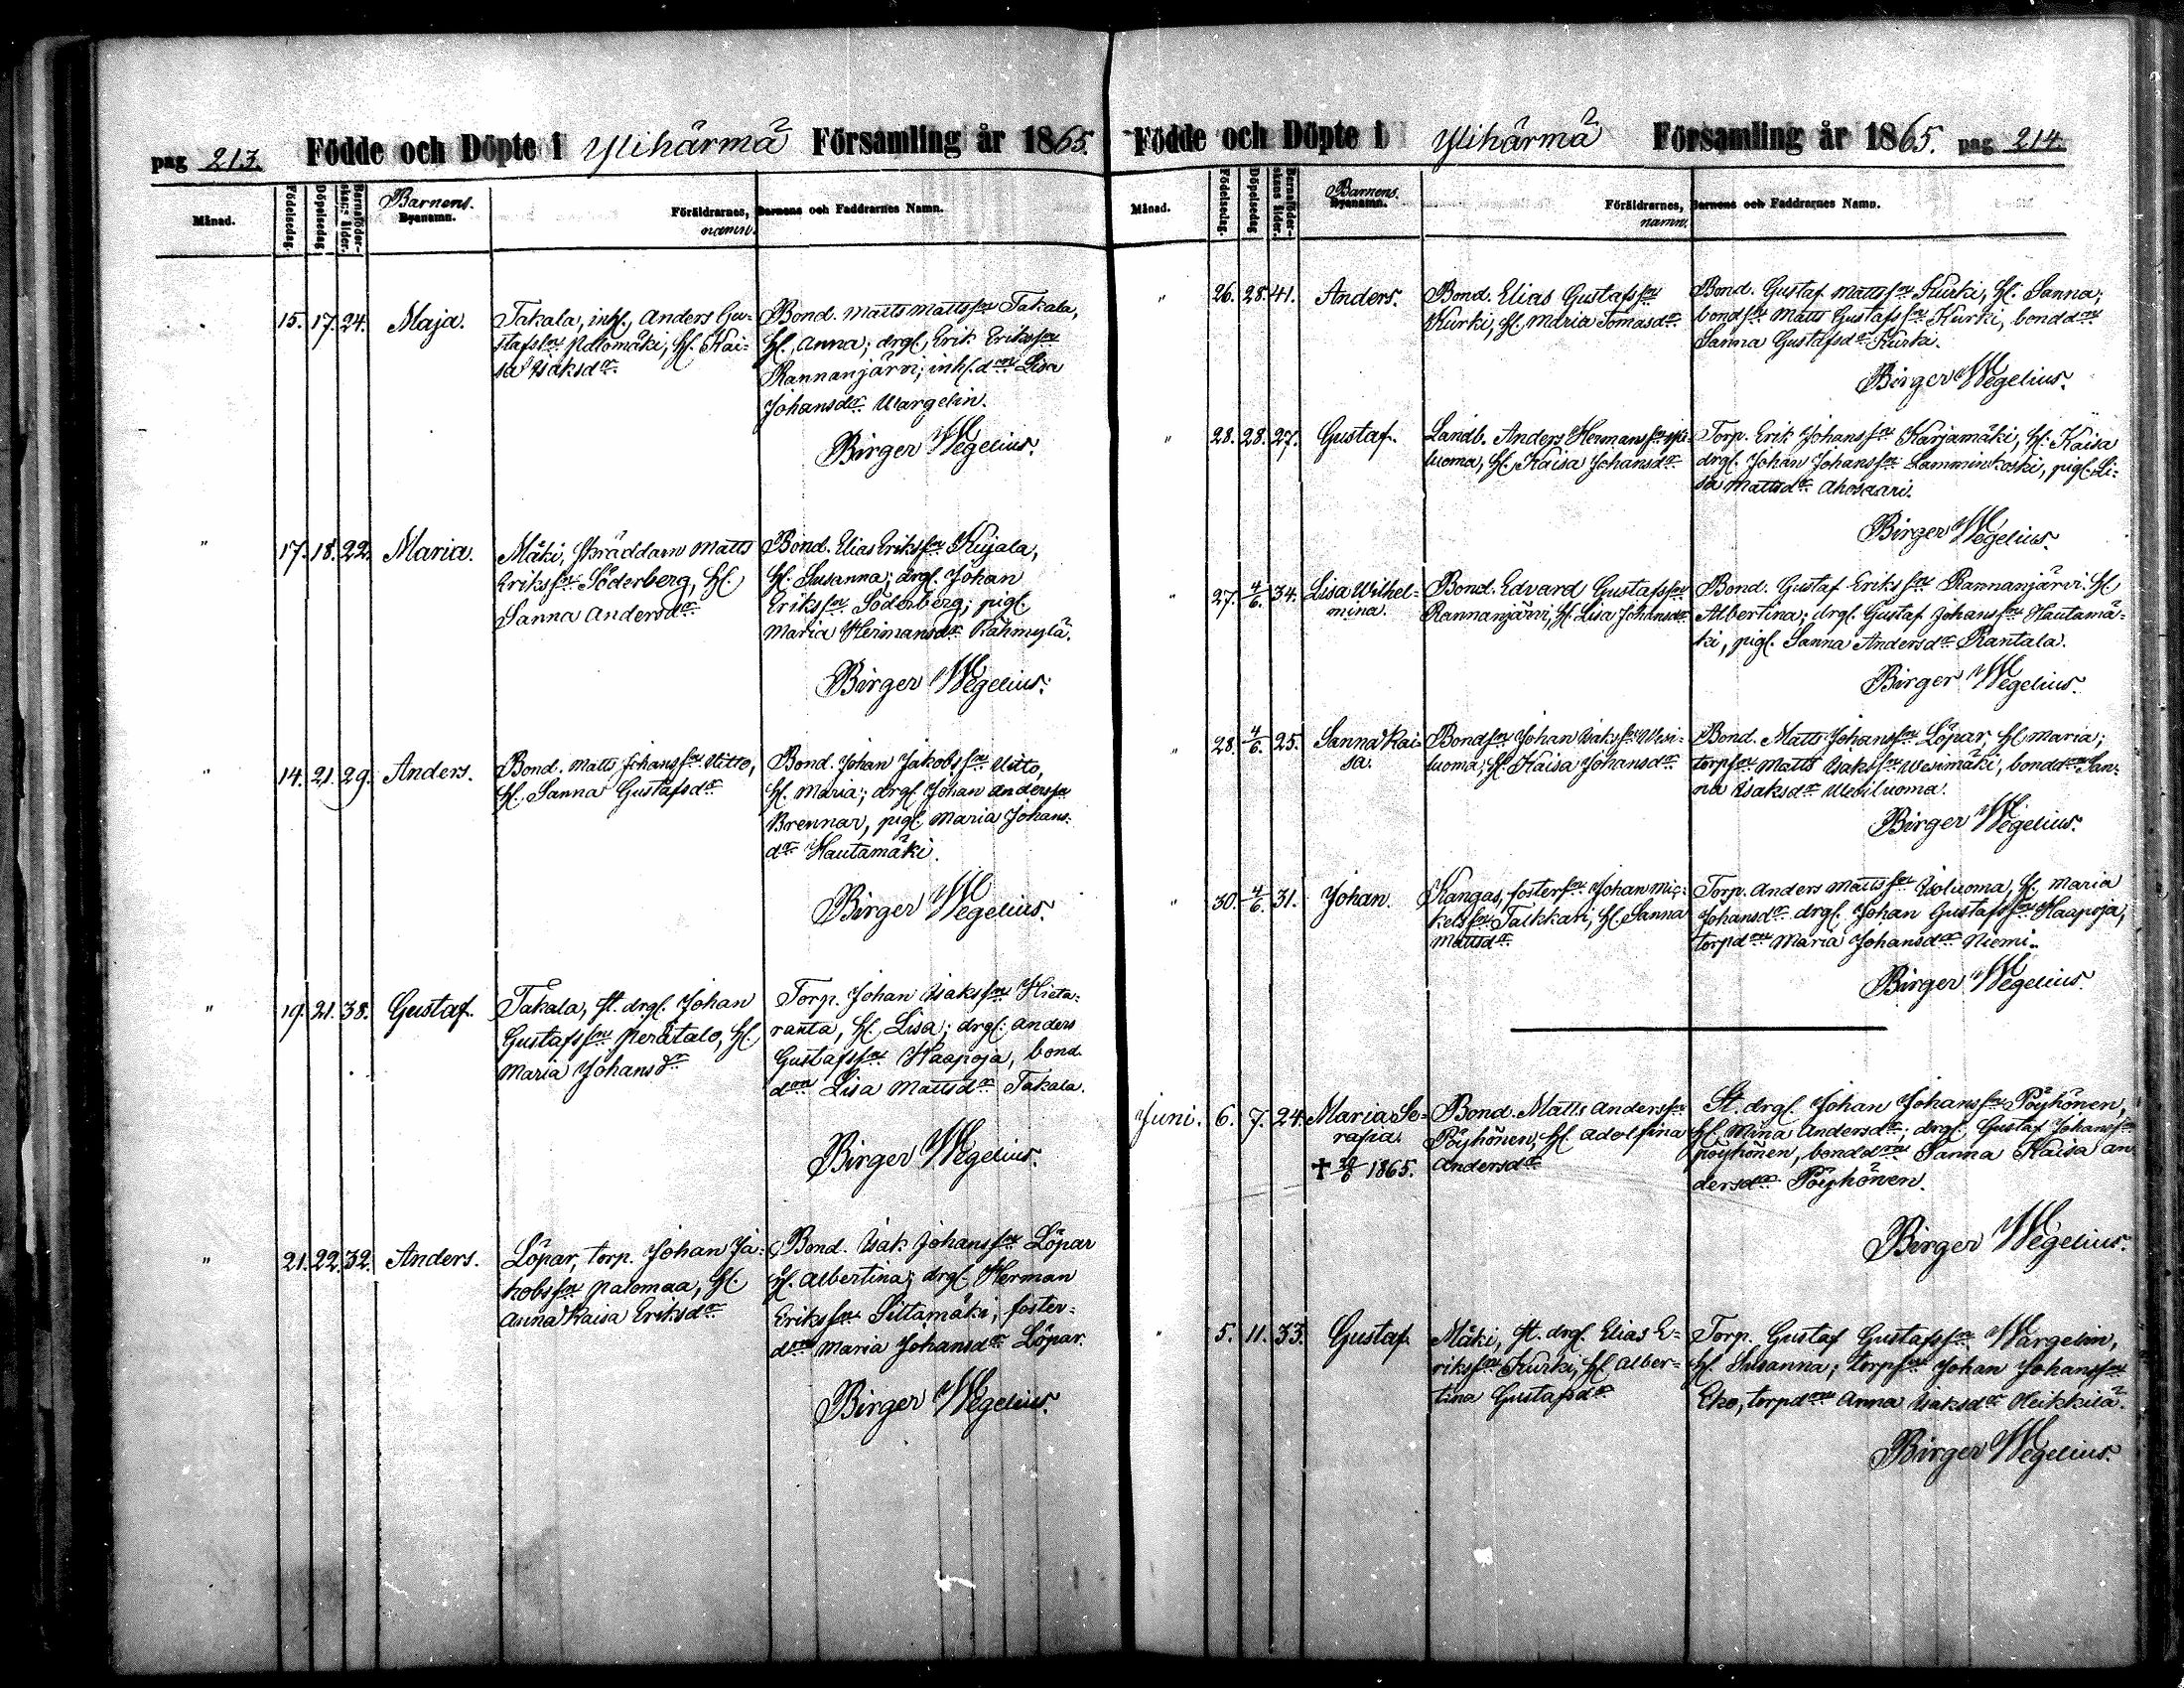 pag 213. Födde och Döpte i Ylihärmä Församling år 1865.
Månad. Födelsedag. Döpelsedag Barnaföder-skans ålder. Barnens. Byenamn. Föräldrarnes, Barnens och Faddrarnes Namn.
namn.
" 15. 17. 24. Maja.
Takala, inh., Anders Gu-
stafs sn Palomäki, h. Kai-
sa Isaksdr
Bond. Matts Matts sn Takala,
h. Anna; drgl. Erik Eriks sn
Rannanjärvi; inh. dn Lisa
Johansdr Wargelin.
Birger Wegelius.
" 17. 18. 22. Maria.
Mäki, Matts
Eriks sn Söderberg, h.
Sanna Andersdr
Bond. Elias Eriks sn Kujala,
h. Susanna; drgl. Johan
Eriks sn Söderberg; pigl.
Maria Hermansdr
Birger Wegelius.
" 14. 21. 29. Anders.
Bond. Matts Johans sn
h. Sanna Gustafsdr
Bond. Johan Jakobs sn
h. Maria; drgl. Johan Anders sn
Brennar, pigl. Maria Johans-
dr Hautamäki.
Birger Wegelius.
" 19. 21. 38. Gustaf.
Takala, st. drgl. Johan
Gustafs sn Perätalo, h.
Maria Johansdr
Torp. Johan Isaks sn Hieta-
ranta, h. Lisa; drgl. Anders
Gustafs sn Haapoja, bond.
don Lisa Mattsdr Takala.
Birger Wegelius.
" 21. 22. 32. Anders.
Löpar, torp. Johan Ja-
kobs sn Palomaa, h.
Anna Kaisa Eriksdr
Bond. Isak Johans sn Löpar
h. Albertina; drgl. Herman
Eriks sn Siltamäki, foster-
don Maria Johansdr Löpar.
Birger Wegelius.
Födde och Döpte i Ylihärmä Församling år 1865. pag 214.
Månad. Födelsedag. Döpelsedag Barnaföder-skans ålder. Barnens. Byenamn. Föräldrarnes, Barnens och Faddrarnes Namn.
namn.
" 26. 28. 41. Anders.
Bond. Elias Gustafs sn
Kurki, h. Maria Tomasdr
Bond. Gustaf Matts sn Kurki, h. Sanna;
bond sn Matts Gustafs sn Kurki, bonddon
Sanna Gustafsdr Kurki.
Birger Wegelius.
" 28. 28. 27. Gustaf.
Landb. Anders Hermans sn
luoma, h. Kaisa Johansdr
Torp. Erik Johans sn Karjamäki, h. Kaisa
drgl. Johan Johans sn Lamminkoski, pigl. Li-
sa Mattsdr Ahosaari.
Birger Wegelius.
" 27. 4/6. 34. Lisa Wilhel-
mina.
Bond. Edvard Gustafs sn
Rannanjärvi, h. Lisa Johansdr
Bond. Gustaf Eriks sn Rannanjärvi h.
Albertina; drgl. Gustaf Johans sn Hautamä-
ki, pigl. Sanna Andersdr Rantala.
Birger Wegelius.
" 28. 4/6. 25. Sanna Kai-
sa.
Bond sn Johan Isaks sn Wesi-
luoma, h. Kaisa Johansdr
Bond. Matts Johans sn Löpar, h. Maria;
torp sn Matts Isaks sn Wesimäki, bonddon San-
na Isaksdr Wesiluoma.
Birger Wegelius.
" 30. 4/6. 31. Johan.
Kangas, foster sn Johan Mic-
kels sn Talkkari, h. Sanna
Mattsdr
Torp. Anders Matts sn Isoluoma, h. Maria
Johansdr drgl. Johan Gustafs sn Haapoja,
torpdon Maria Johansdr Niemi.
Birger Wegelius.
Juni. 6. 7. 24. Maria Se-
rafia.
1865.
Bond. Matts Anders sn
Pöyhönen, h. Adolfina
Andersdr
St. drgl. Johan Johans sn Pöyhönen,
h. Mina Andersdr; drgl. Gustaf Johans sn
Pöyhönen, bonddon Sanna Kaisa An
dersdr Pöyhönen.
Birger Wegelius.
" 5. 11. 33. Gustaf.
Mäki, st. drgl. Elias E-
riks sn Kurki, h. Alber-
tina Gustafsdr
Torp. Gustaf Gustafs sn Wargelin,
h. Susanna; torp sn Johan Johans sn
Eko, torpdon Anna Isaksdr Heikkilä.
Birger Wegelius.